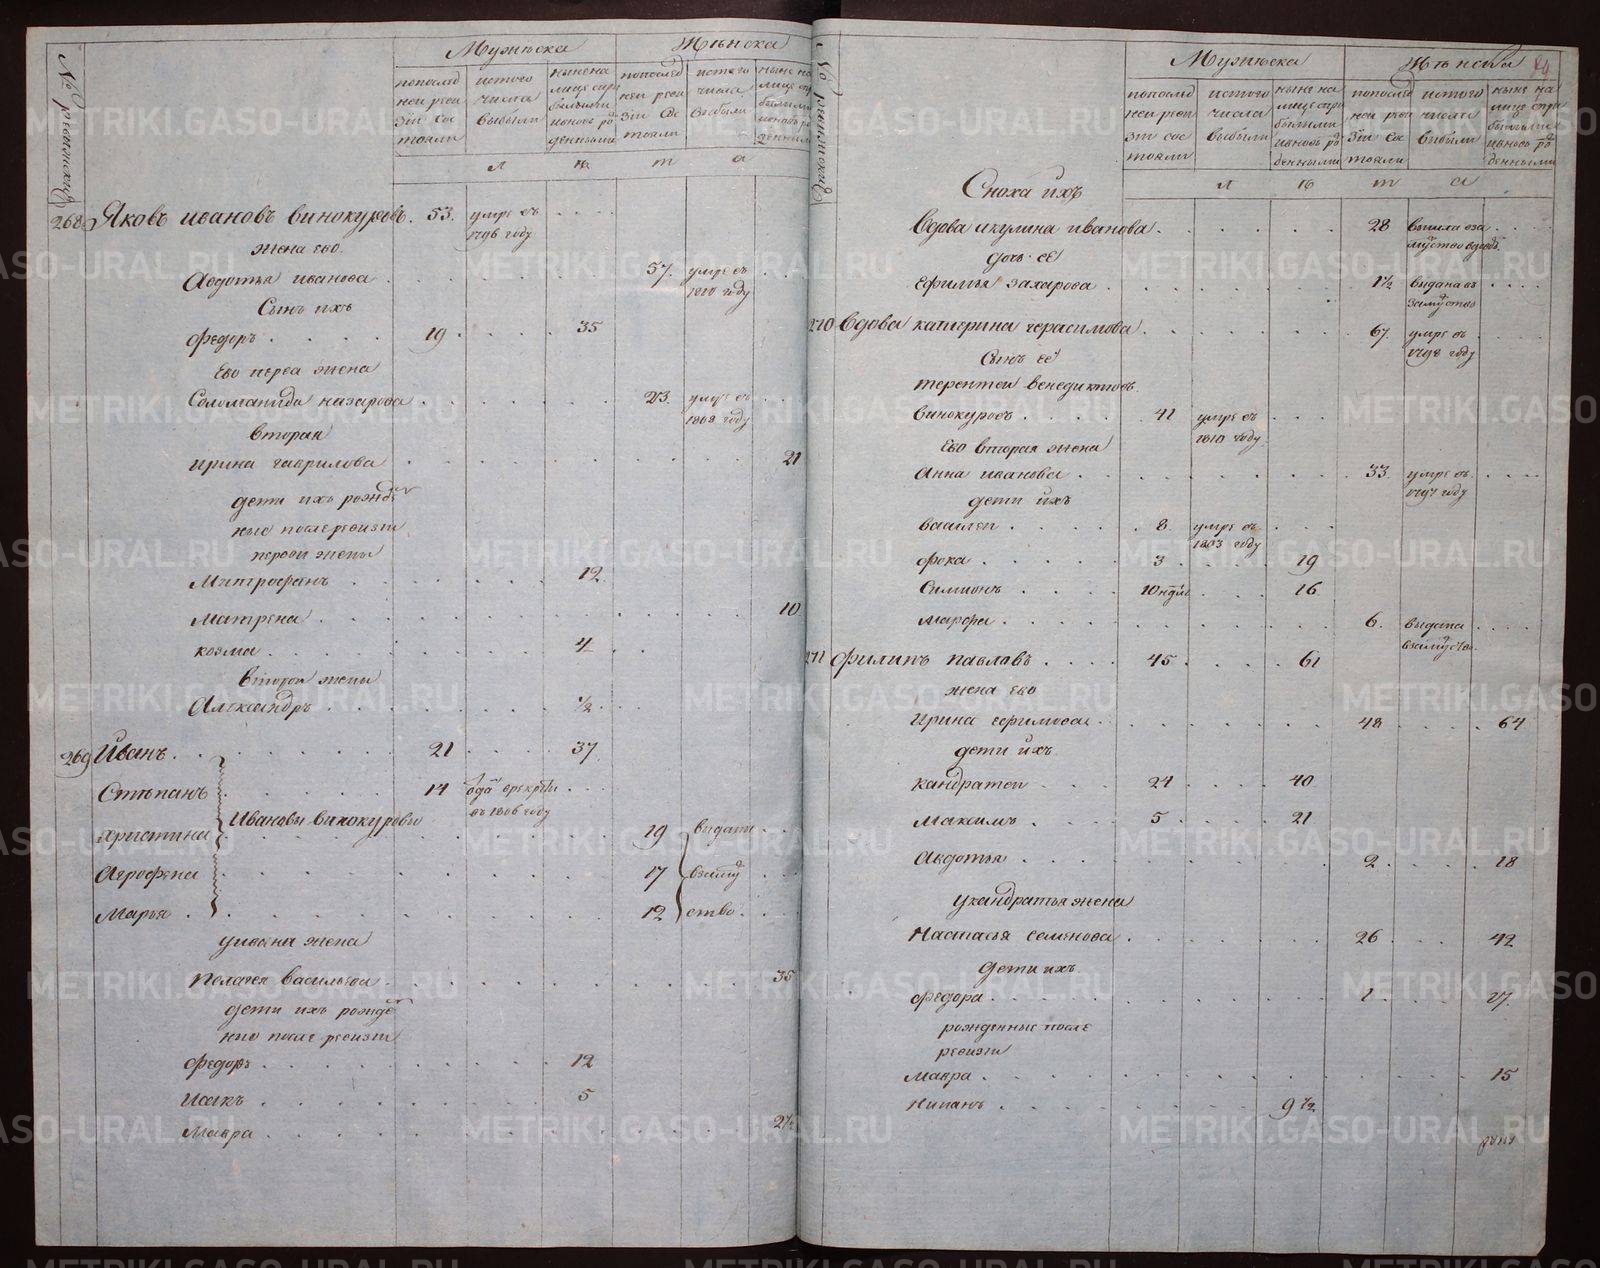 № ревижския
Мужеска
Женска
попослед ней реви зiи сос тояли
истого числа выбыли
ныне на лице при былыми ивновь ро денными
попослед ней реви зiи со стояли
истого числа выбыли
ныне на лице при былыми ивновь ро денными
л е т а
268 Яковъ ивановъ винокуровъ 53 умре въ 1796 году
жена ево
Авдотья иванова 57 умре въ 1810 году
Сынъ ихъ
федоръ 19 35
Ево перва жена
Соломанида назарова 23 умре въ 1808 году
вторая
ирина гаврилова 21
дети ихъ рожде
ные после ревизiи
первой жены
Митрофанъ 12
Матрена 10
козма 4
второй жены
Александръ 1/2
269 Иванъ 21 37
Степанъ 14 одан врекруты въ 1806 году
Ивановы винокуровы
христина 19 выданы
Агрофена 17 взамуж
Марья 12 ство
уивана жена
Пелагея васильева 35
дети ихъ рожде
ные после ревизiи
федоръ 12
Исакъ 5
Мавра 2 1/2
№ ревижский
Мужеска
Женска
89
попослед ней реви зiи сос тояли
истого числа выбыли
ныне на лице при былыми ивновь ро денными
попослед ней реви зiи со стояли
истого числа выбыли
ныне на лице при былыми ивновь ро денными
л е т а
Сноха ихъ
вдова икулина иванова 28 вышла вза мужство вдовой
дочь ее
ефимья захарова 1 1/2 выдана въ замужство
270 вдова катерина герасимова 67 умре въ 1798 году
Сынъ её
терентей венедиктовъ
винокуровъ 41 умре въ 1810 году
Ево вторая жена
Анна иванова 33 умре въ 1797 году
дети ихъ
василей 8 умре въ 1803 году
фока 3 19
Симионъ 10 нд̃ль 16
марфа 6 выдана взамужство
271 филипъ павлавъ 45 61
жена ево
ирина ефимова 48 64
дети ихъ
кандратей 24 40
Максимъ 5 21
Авдотья 2 18
укандратья жена
Настасья семенова 26 42
дети ихъ
федора 1 17
рожденные после
ревизiи
Мавра 15
Никанъ 9 1/2